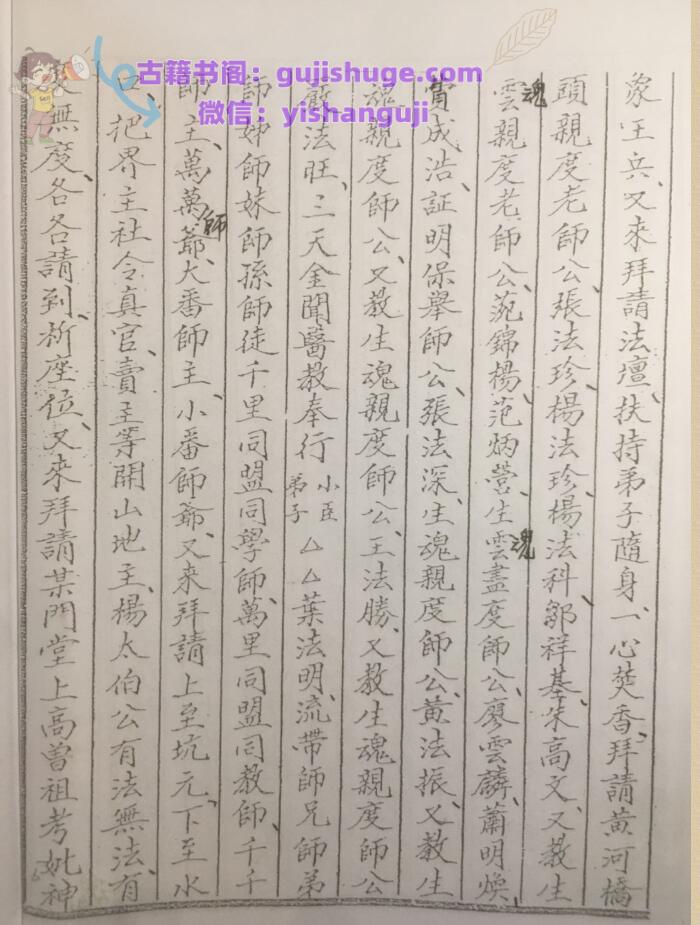 古籍书阁：gujishuge.com
微信：yishanguji
象王兵、又來拜請法壇、扶持弟子隨身、一心焚香、拜請黄河橋
頭親度老師公、張法珍、楊法珍、楊法科、鄒祥基、朱高文、又教生
雲魂親度老師公、范錦楊、范炳營、生雲魂盡度師公、廖雲麟、蕭明煥、
賣成浩、証明保舉師公、張法深、生魂親度師公、黄法振、又教生
魂親度師公、又教生魂親度師公、王法勝、又教生魂親度師公
嚴法旺、三天金闻醫教奉行小臣弟子△△葉法明、流带師兄師弟
師姉師妹師孫師徒千里同盟同學師、萬里同盟同教師、千千
師主、萬萬師爺、大番師主、小番師爺、又来拜請上至坑元、下至水
口、把界主社令真官、賣主等開山地主、楊太伯公有法無法、有
度無度、各各請到、祈座位、又来拜請某門堂上高曾祖考妣神